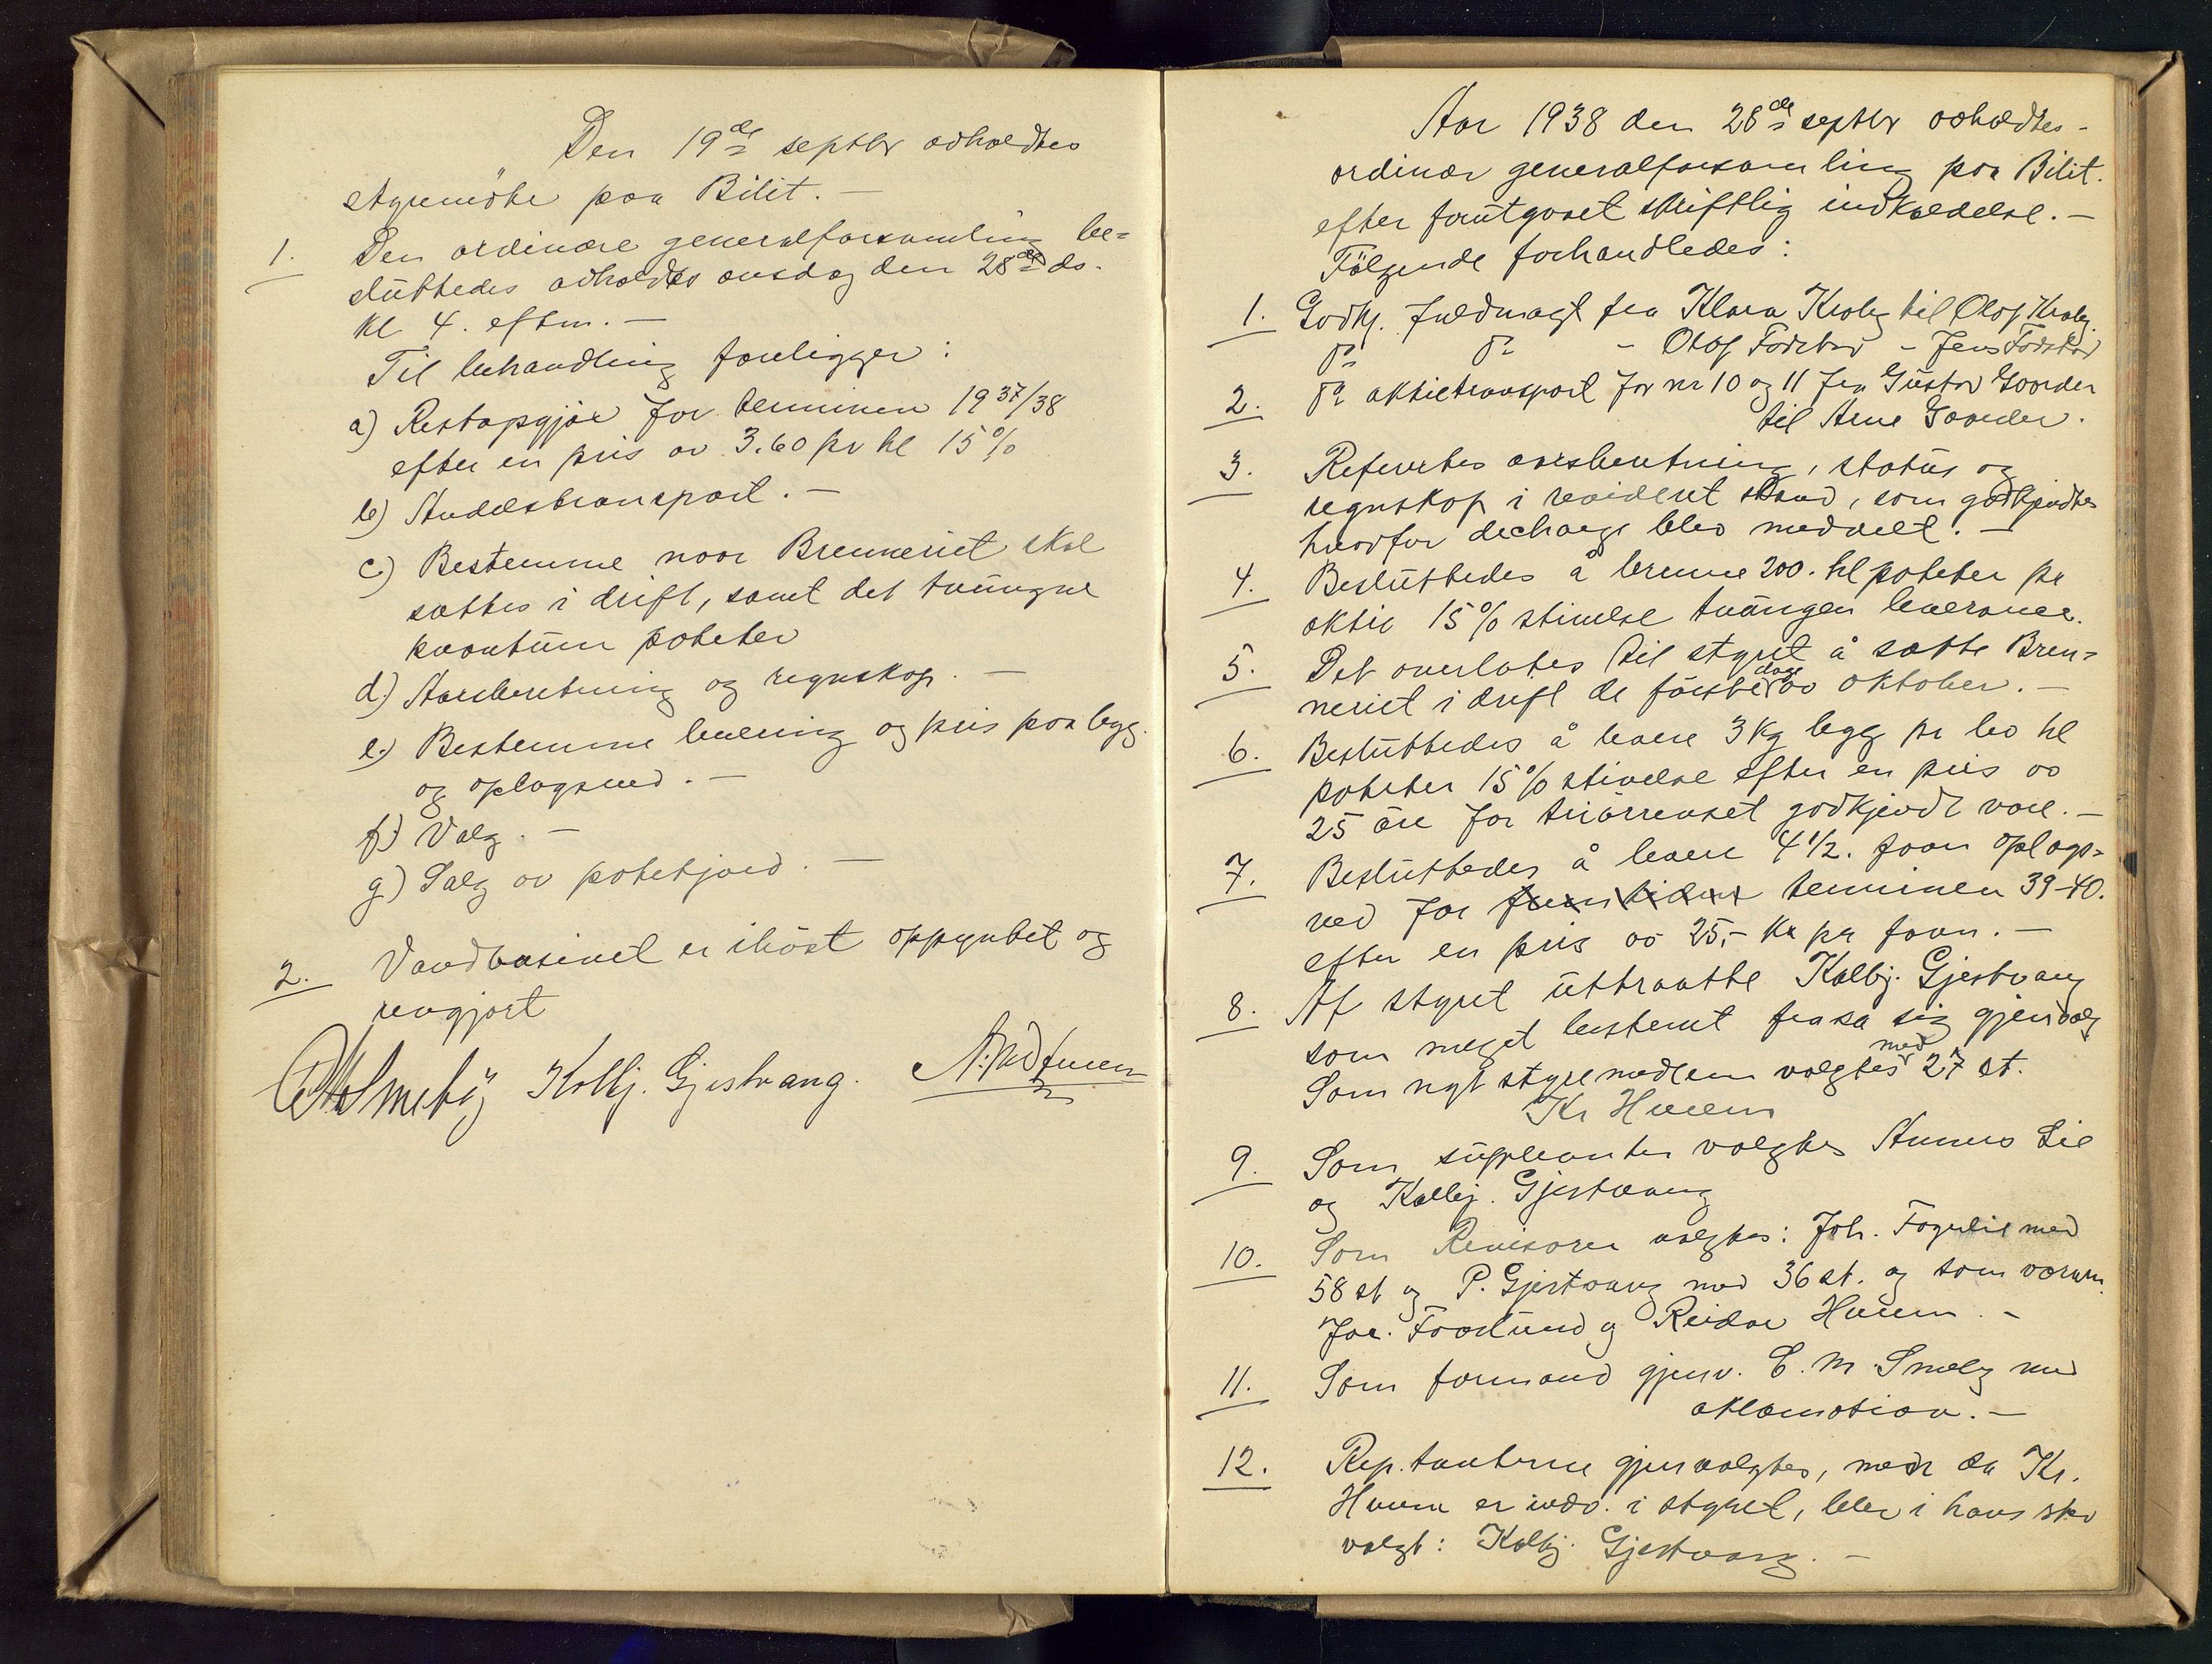 Den 19de septbr avholdtes
styremöte paa Bilit. —
1. Den ordinære generalforsamling be=
sluttedes avholdes onsdag den 28de ds.
kl 4. eftm. —
Til behandling foreligger:
a) Restopgjör for terminen 1937/38
efter en pris av 3.60 pr hl 15%
b) Andelstransport. —
c) Bestemme naar Brenneriet skal
sættes i drift, samt det tvungne
kvantum poteter
d.) Aarsberetning og regnskap. —
e.) Bestemme levering og pris paa byg
og oplagsved. —
f.) Valg. —
g) Salg av potetjord. —
2. Vandbasinet er ihöst oppyntet og
rengjort
Kolbj. Gjestvang.
Aar 1938 den 28de septbr avholdtes -
ordinær generalforsamling paa Bilit.
efter forutgaaet skriftlig indkaldelse. —
Fölgende forhandledes:
1. Godkj. fuldmagt fra Klara Kraby til Olaf Kraby.
Do Do - Olaf Fodstad - Jens Fodstad
2. Do aktietransport for nr 10 og 11 fra Gustav Gaarder
til Arne Gaarder.
3. Refertes aarsberetning, status og
regnskap i revideret stand, som godkjendtes
hvorfor decharge blev meddelt. —
4. Besluttedes å brenne 200. hl poteter pr
aktie 15% stivelse tvungen leveranse.
5. Det overlates til styret å sætte Bren=
neriet i drift de förste dage av oktober. —
6. Besluttedes å levere 3 kg bygg pr lev hl
poteter 15% stivelse efter en pris av
25 öre for triörrenset godkjendt vare. —
7. Besluttedes å levere 4 1/2. favn oplags=
ved for fremtiden terminen 39-40.
efter en pris av 25,- kr pr favn. —
8. Af styret uttraatte Kolbj. Gjestvang
som meget bestemt frasa sig gjenvalg
Som nyt styremedlem valgtes med 27 st.
Kr Huuem
9. Som supleanter valgtes Lie
og Kolbj. Gjestvang
10. Som Revisorer valgtes: Joh. Fagerlie med
58 st og P. Gjestvang med 36 st. og som varam.
Faaslund og Reidar Huuem. -
11. Som formand gjenv. C. M. Smeby med
aklamation. —
12. Rep.tanterne gjenvalgtes, men da Kr.
Huuem er indv. i styret, blev i hans sted
valgt: Kolbj. Gjestvang. —